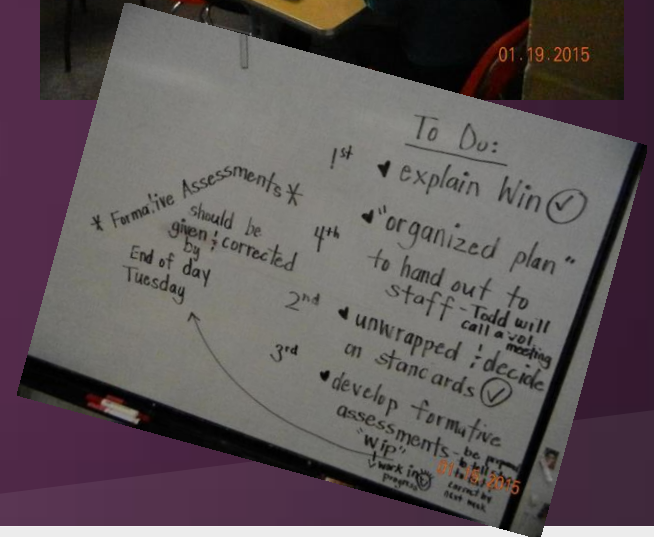 01.19.2015
To Do:
1st explain Win ✓
4th "organized plan"
to hand out to
staff - Todd will
call a vol.
meeting
2nd unwrapped & decide
on standards ✓
3rd develop formative
assessments - be
"Wip"
work in
progress
next week
* Formative Assessments *
should be
given & corrected
by
End of day
Tuesday